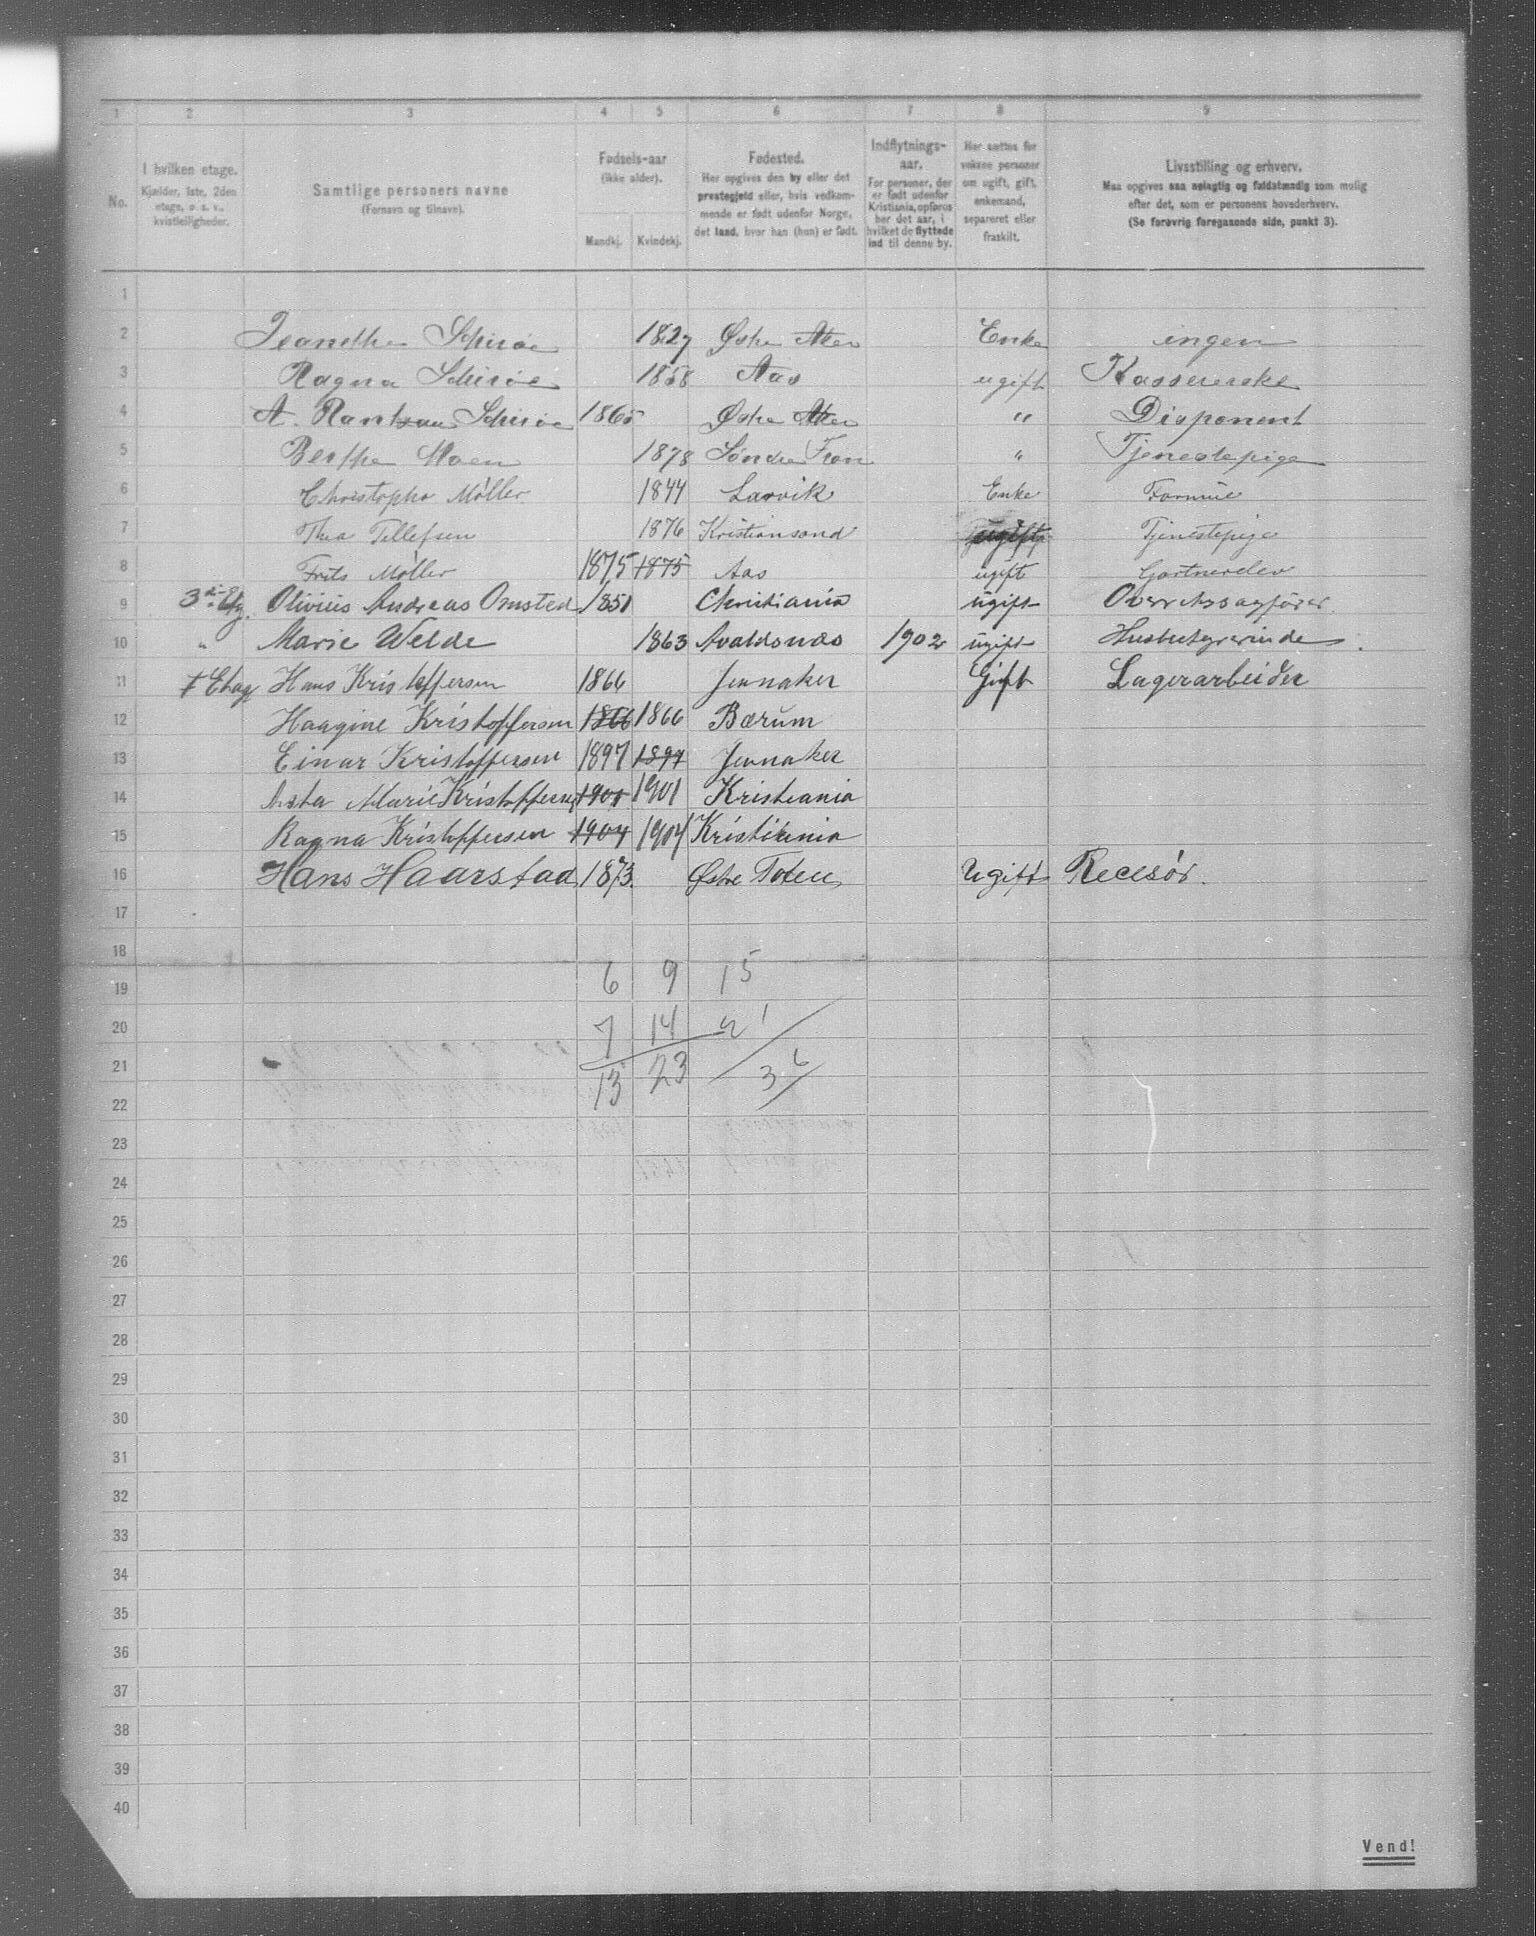 1 2 3 4 5 6 7 8 9
No.
I hvilken etage.
Kjælder, 1ste, 2den
etage, o. s. v.,
kvistleiligheder.
Samtlige personers navne
(Fornavn og tilnavn).
Fødsels-aar
(ikke alder).
Mandkj. Kvindekj.
Fødested.
Her opgives den by eller det
prestegjeld eller, hvis vedkom-
mende er født udenfor Norge,
det land, hvor han (hun) er født.
Indflytnings-
aar.
For personer, der
er født udenfor
Kristiania, opføres
her det aar, i
hvilket de flyttede
ind til denne by.
Her sættes for
voksne personer
om ugift, gift,
enkemand,
separeret eller
fraskilt.
Livsstilling og erhverv.
Maa opgives saa nøiagtig og fuldstændig som mulig
efter det, som er personens hovederhverv.
(Se forøvrig foregaaende side, punkt 3).
1
2 Jeanethe Schirøe 1827 Østre Aker Enke ingen
3 Ragna Schirøe 1858 Aas ugift Kassererske
4 A. Rantzau Schirøe 1865 Østre Aker " Disponent
5 Berthe Moen 1878 Søndre Fron " Tjenestepige
6 Christopha Møller 1844 Larvik Enke Formue
7 Thea Tellefsen 1876 Kristiansand ugift Tjenestepige
8 Frits Møller 1875 1875 Aas ugift Gartnerelev
9 3die Etg. Olivius Andreas Omsted 1851 Christiania ugift Overretssagfører
10 " Marie Welde 1863 Avaldsnæs 1902 ugift Husbestyrerinde
11 1 Etage Hans Kristoffersen 1866 Jevnaker Gift Lagerarbeider
12 Haagine Kristoffersen 1866 1866 Bærum
13 Einar Kristoffersen 1897 1897 Jevnaker
14 Asta Marie Kristoffersen 1901 1901 Kristiania
15 Ragna Kristoffersen 1904 1904 Kristiania
16 Hans Haarstad 1873. Østre Toten Ugift
17
18
19 6 9 15
20 7 14 21
21 13 23 36
22
23
24
25
26
27
28
29
30
31
32
33
34
35
36
37
38
39
40
Vend!